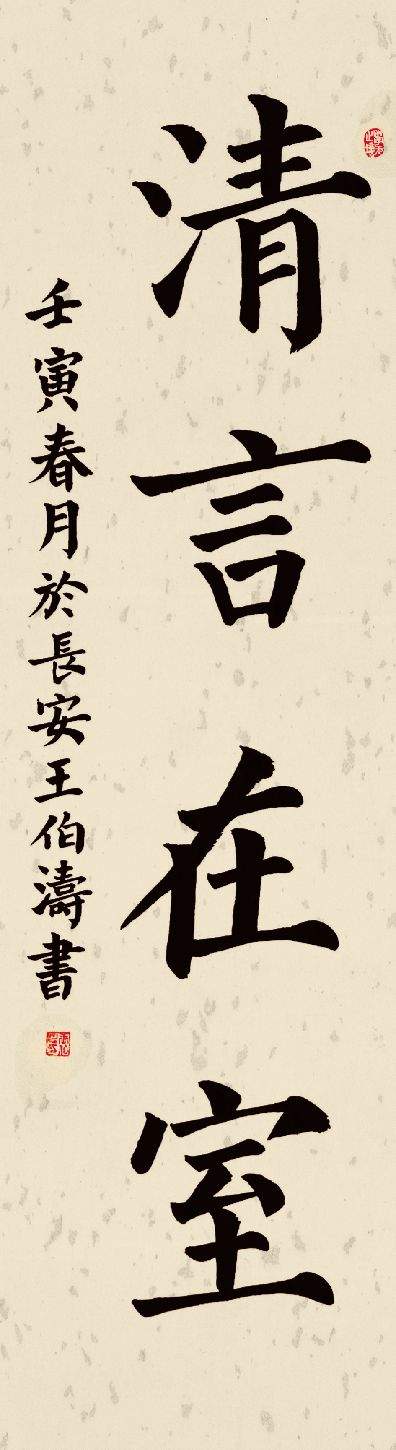 清言在室
壬寅春月於長安王伯濤書